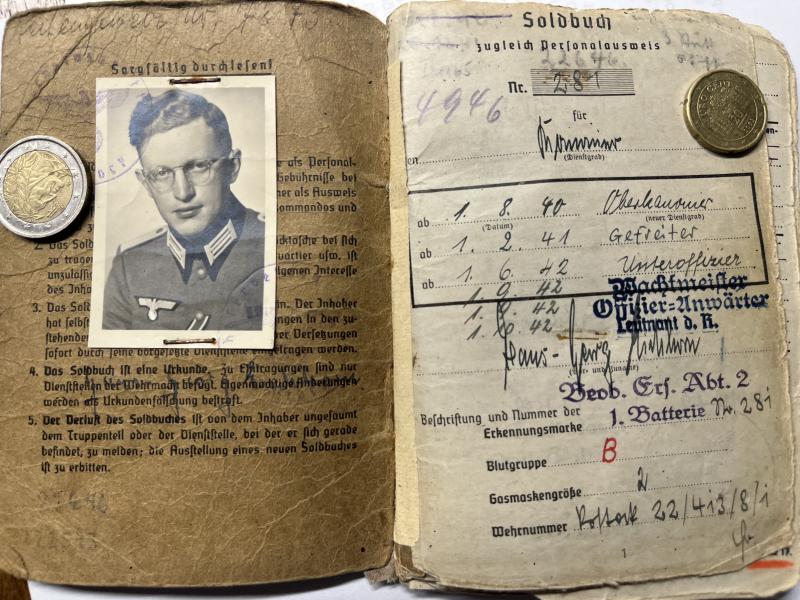 Sorgfältig durchlesen!
als Personal-
Gebührnisse bei
er als Ausweis
ommandos und
2. Das Sold
tasche bei sich
zu tragen
uartier usw. ist
unzulässig
genen Interesse
des Inh
3. Das Sold
in. Der Inhaber
hat selbst
ungen in den zu-
stehenden
er Versetzungen
sofort durch seine vorgesetzte Dienststelle eingetragen werden.
4. Das Soldbuch ist eine Urkunde, zu Eintragungen sind nur
Dienststellen der Wehrmacht befugt. Eigenmächtige Änderungen
werden als Urkundenfälschung bestraft.
5. Der Verlust des Soldbuches ist von dem Inhaber ungesäumt
dem Truppenteil oder der Dienststelle, bei der er sich gerade
befindet, zu melden; die Ausstellung eines neuen Soldbuches
ist zu erbitten.
Soldbuch
zugleich Personalausweis
22646
Nr. 281
4946
für
Kanonier
(Dienstgrad)
ab 1. 8. 40 Oberkanonier
(Datum) (neuer Dienstgrad)
ab 1. 2. 41 Gefreiter
ab 1. 6. 42 Unteroffizier
1. 9. 42 Wachtmeister
1. 8. 42 Offizier-Anwärter
1. 6. 42 Leutnant d. R.
Hans-Georg
(Vor- und Zuname)
Beob. Ers. Abt. 2
Beschriftung und Nummer der
Erkennungsmarke 1. Batterie Nr. 281
Blutgruppe B
Gasmaskengröße 2
Wehrnummer Rostock 22/413/8/1
1